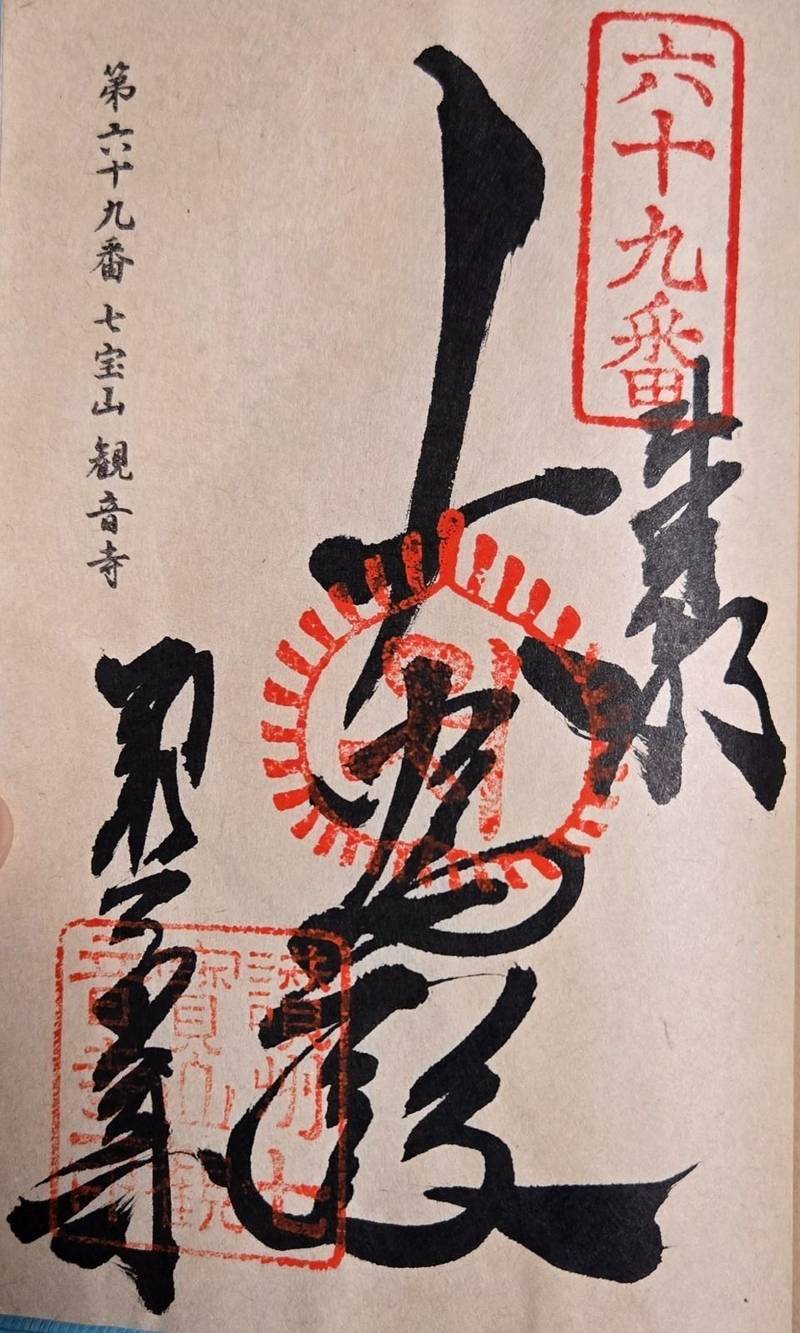 六十九番
奉納
讃州七
寶山観
音寺印
観音寺
第六十九番 七宝山 観音寺